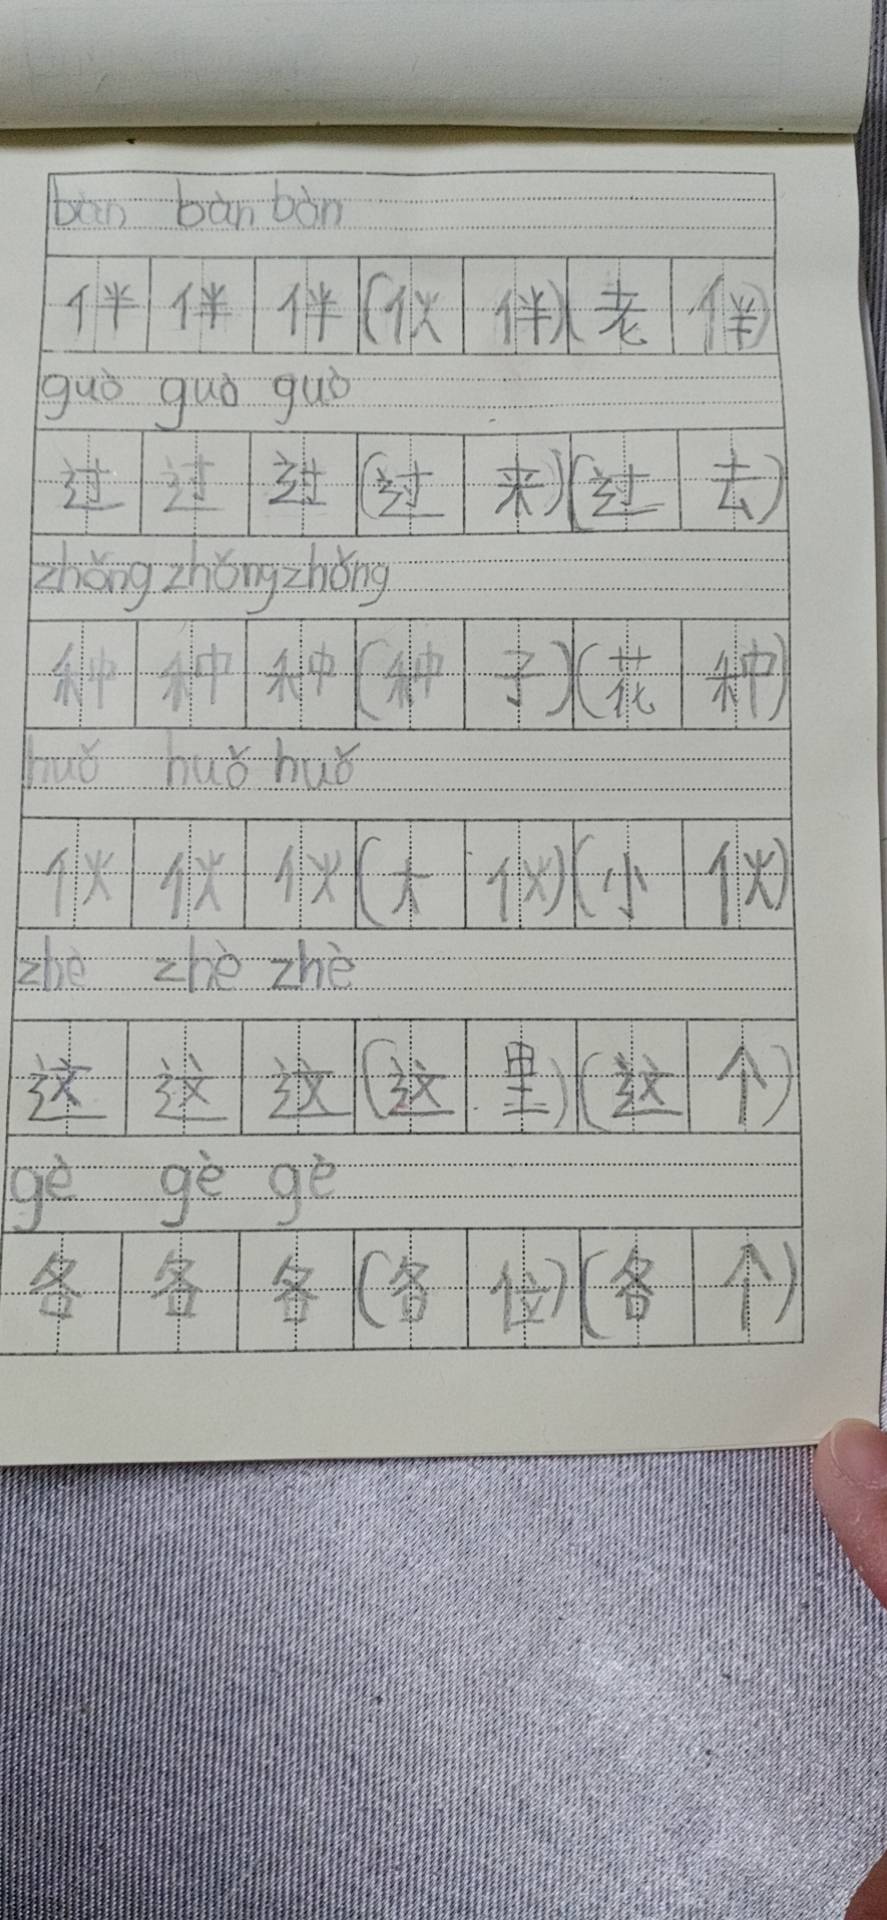 bàn bàn bàn
伴伴伴(伙伴)(老伴)
guò guò guò
过过过(过来)(过去)
zhǒng zhǒng zhǒng
种种种(种子)(花种)
huǒ huǒ huǒ
伙伙伙(大伙)(小伙)
zhè zhè zhè
这这这(这里)(这个)
gè gè gè
各各各(各位)(各个)